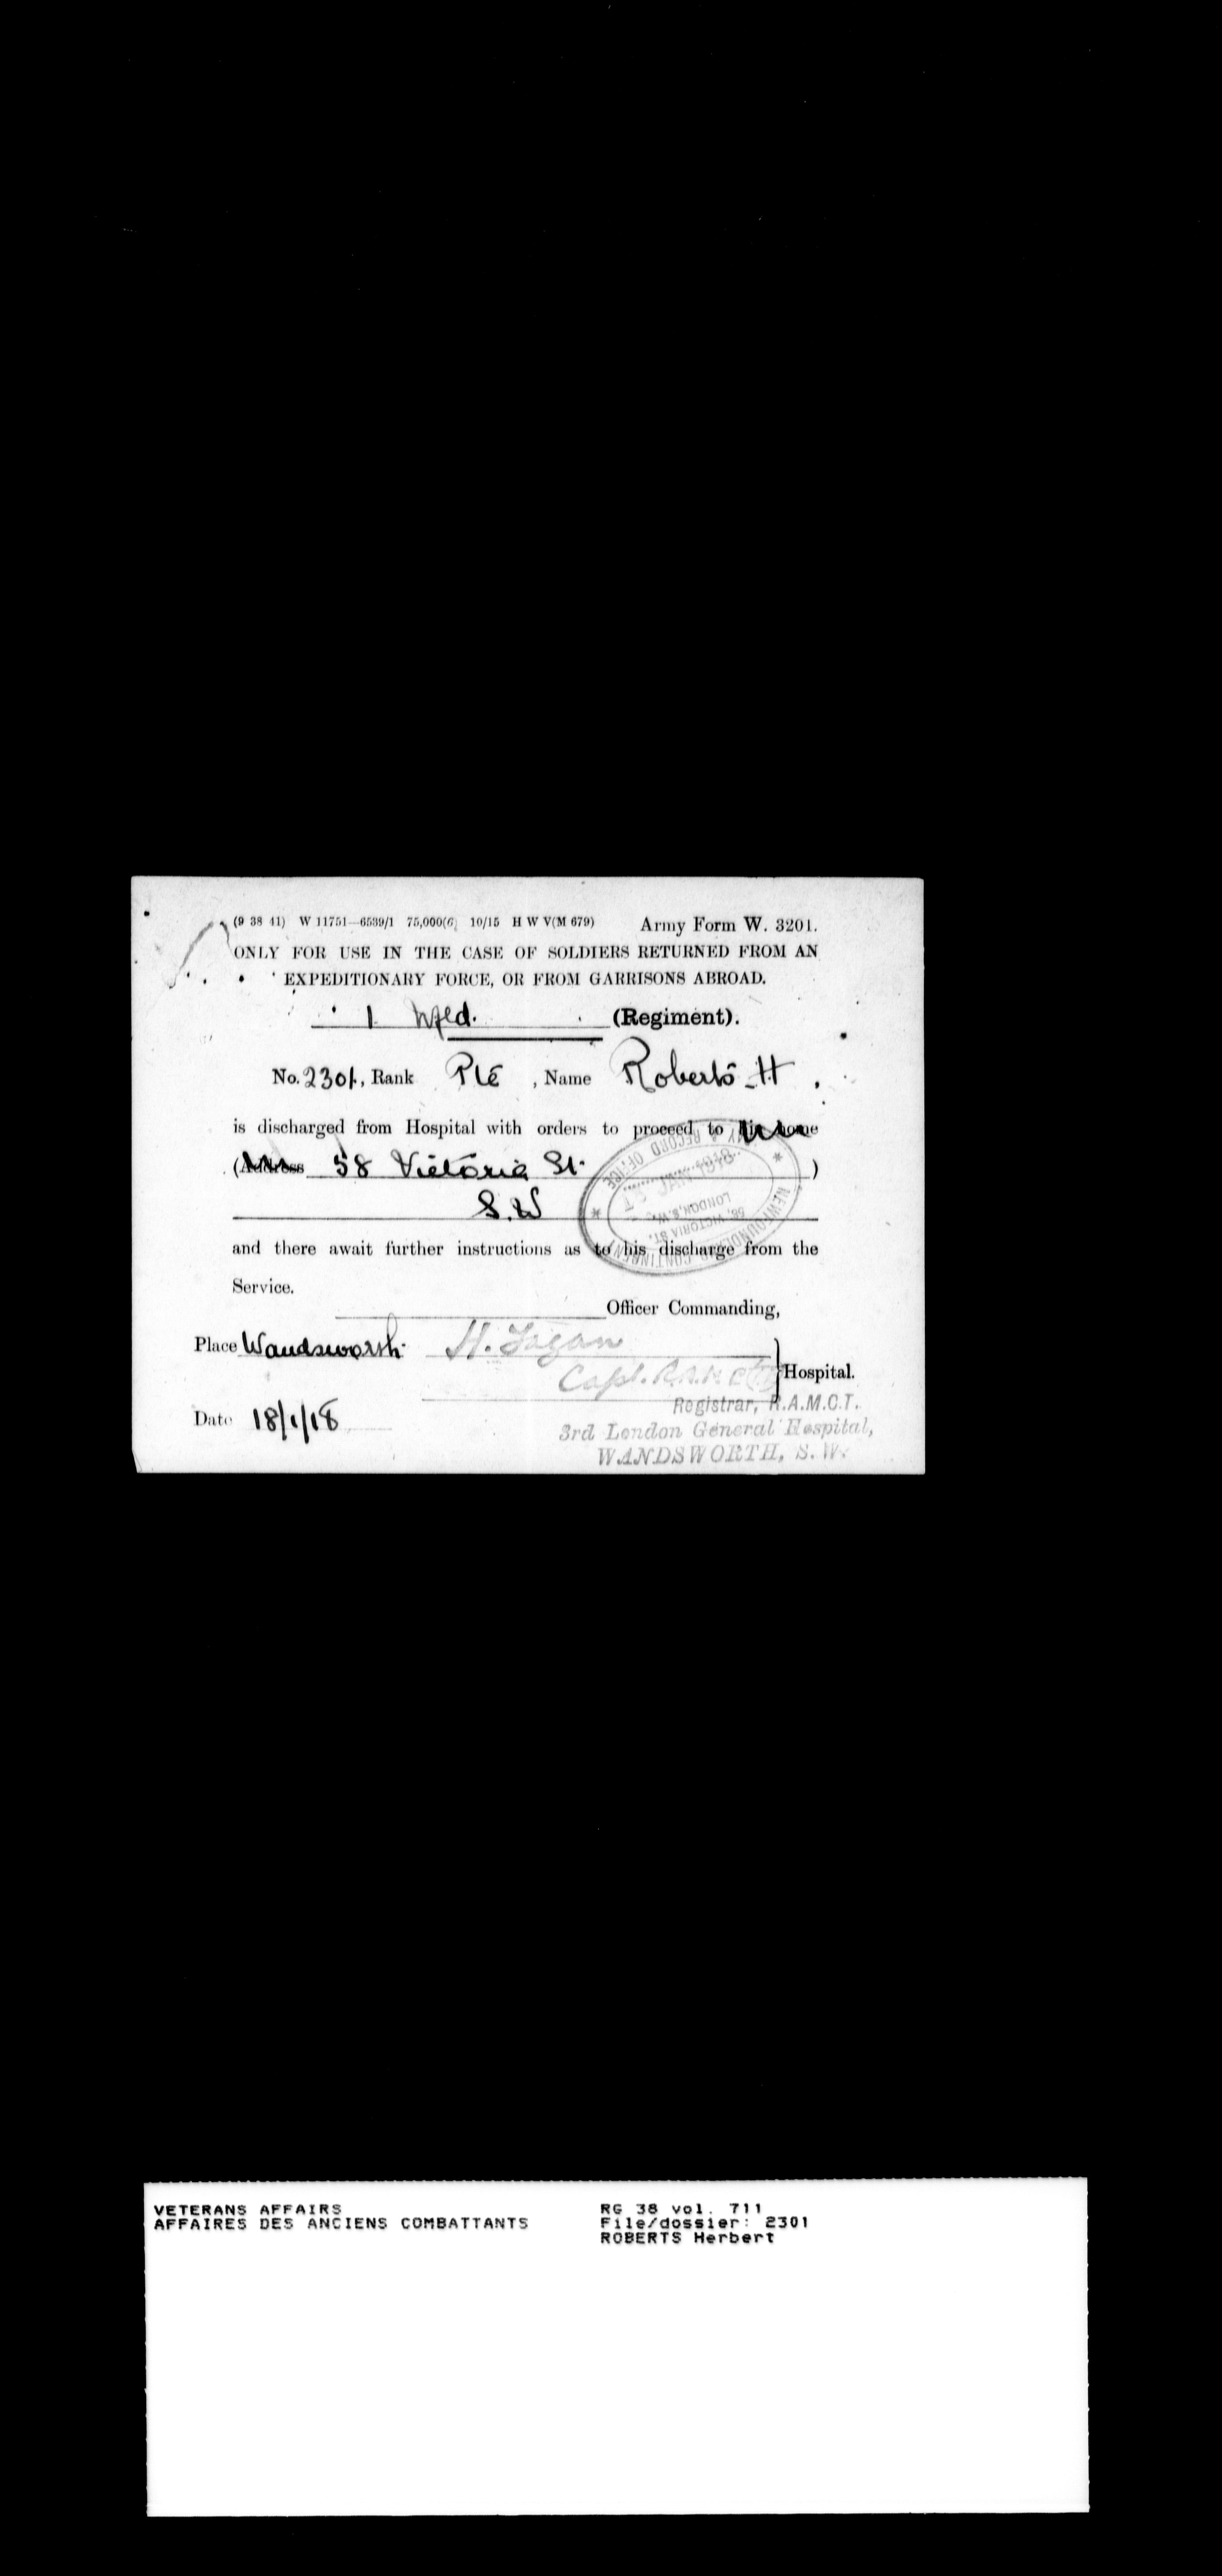 (9 38 41) W 11751—6539/1 75,000(6) 10/15 H W V(M 679) Army Form W. 3201.
ONLY FOR USE IN THE CASE OF SOLDIERS RETURNED FROM AN
EXPEDITIONARY FORCE, OR FROM GARRISONS ABROAD.
1 Nfld. (Regiment).
No. 2301, Rank Pte, Name Roberts H.
is discharged from Hospital with orders to proceed to his home
(Address 58 Victoria St. )
S.W
NEWFOUNDLAND CONTINGENT
PAY & RECORD OFFICE
JAN 1918
58, VICTORIA ST.
LONDON, S.W.
and there await further instructions as to his discharge from the
Service.
Officer Commanding,
Place Wandsworth H.
Capt. Hospital.
Registrar, R.A.M.C.T.
Date 18/1/18
3rd London General Hospital,
WANDSWORTH, S.W.
VETERANS AFFAIRS RG 38 vol. 711
AFFAIRES DES ANCIENS COMBATTANTS File/dossier: 2301
ROBERTS Herbert